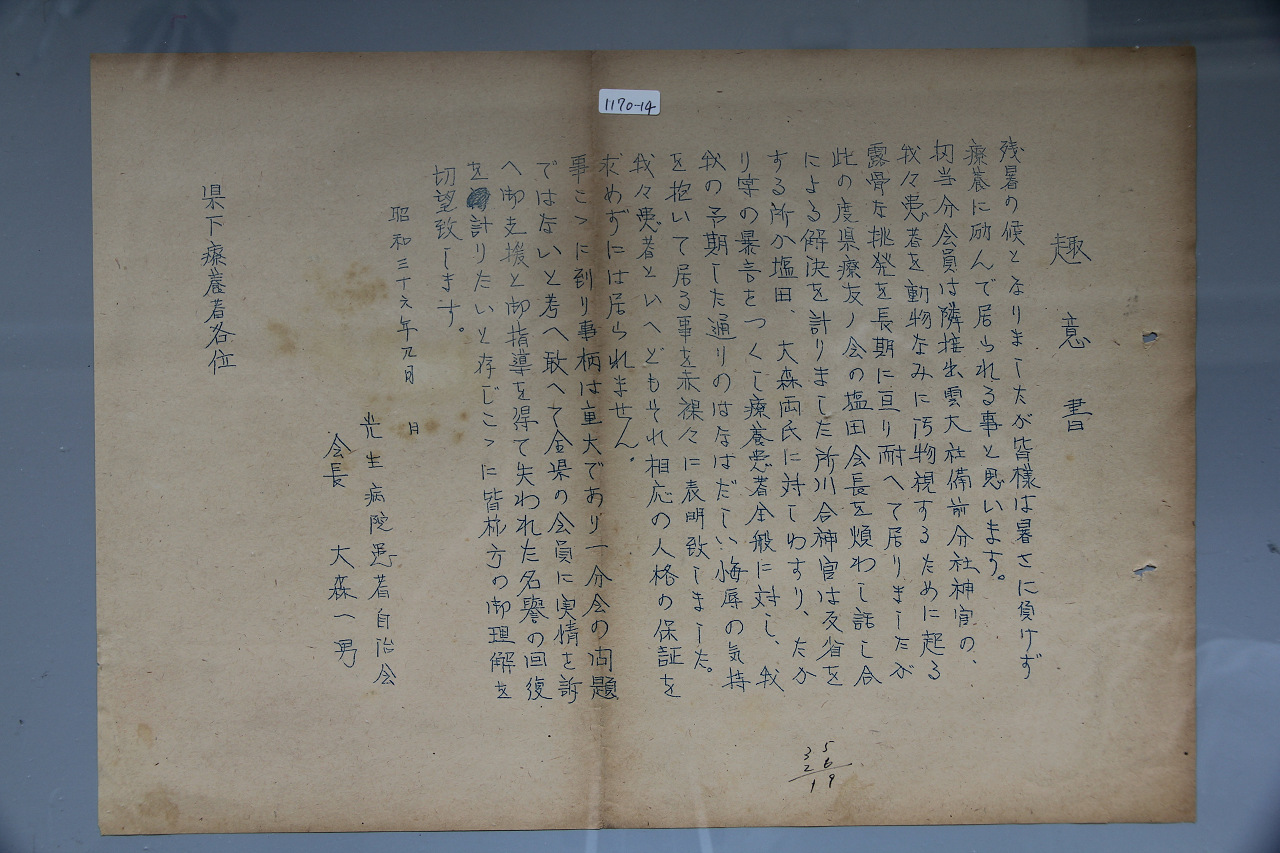 1170-14
趣意書
残暑の候となりましたが皆様は暑さに負けず
療養に励んで居られる事と思います。
切当分会員は隣接出雲大社備前分社神官の、
我々患者を動物なみに汚物視するために起る
露骨な挑発を長期に亘り耐へて居りましたが
此の度県療友ノ会の塩田会長を煩わし話し合
による解決を計りました所川合神官は反省を
する所か塩田、大森両氏に対しわすり、たか
り等の暴言をつくし療養患者全般に対し、我
我の予期した通りのはなはだしい侮辱の気持
を抱いて居る事を赤裸々に表明致しました。
我々患者といへどもそれ相応の人格の保証を
求めずには居られません。
事こゝに到り事柄は重大であり一分会の問題
ではないと考へ敢へて全県の会員に実情を訴
へ御支援と御指導を得て失われた名誉の回復
を計りたいと存じこゝに皆様方の御理解を
切望致します。
昭和三十六年九月 日
光生病院患者自治会
会長 大森一男
県下療養者各位
35
26
19